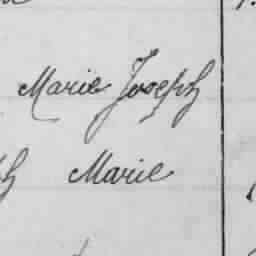 Marie Joseph
Marie